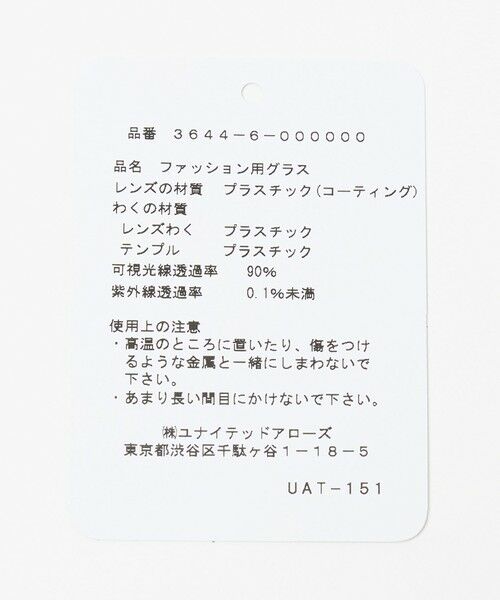 品番 3644-6-000000
品名 ファッション用グラス
レンズの材質 プラスチック(コーティング)
わくの材質
レンズわく プラスチック
テンプル プラスチック
可視光線透過率 90%
紫外線透過率 0.1%未満
使用上の注意
・高温のところに置いたり、傷をつけ
るような金属と一緒にしまわないで
下さい。
・あまり長い間目にかけないで下さい。
㈱ユナイテッドアローズ
東京都渋谷区千駄ヶ谷1-18-5
UAT-151